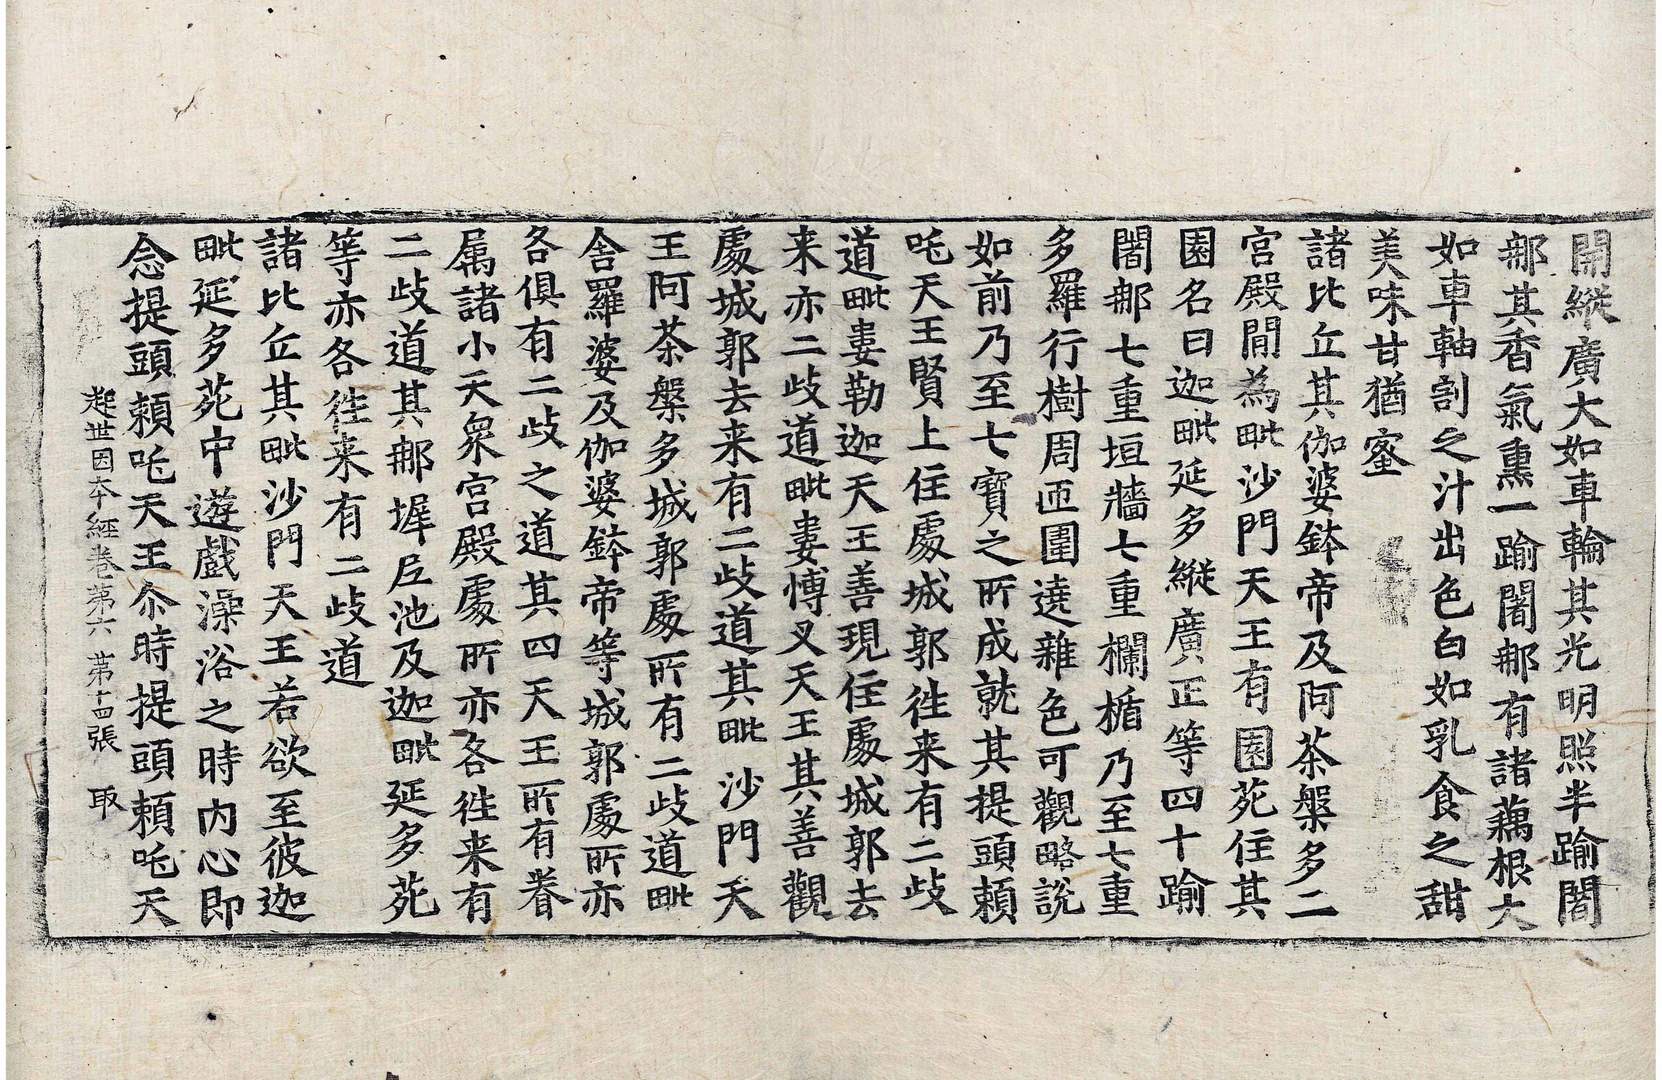 開縱廣大如車輪其光明照半踰闍
那其香氣熏一踰闍那有諸藕根大
如車軸割之汁出色白如乳食之甜
美味甘猶蜜
諸比丘其伽婆鉢帝及阿茶槃多二
宮殿間為毗沙門天王有園苑住其
園名曰迦毗延多縱廣正等四十踰
闍那七重垣牆七重欄楯乃至七重
多羅行樹周匝圍遶雜色可觀略說
如前乃至七寶之所成就其提頭頼
吒天王賢上住處城郭往来有二歧
道毗婁勒迦天王善現住處城郭去
来亦二歧道毗婁愽叉天王其善觀
處城郭去来有二歧道其毗沙門天
王阿茶槃多城郭處所有二歧道毗
舍羅婆及伽婆鉢帝等城郭處所亦
各俱有二歧之道其四天王所有眷
属諸小天衆宮殿處所亦各往来有
二歧道其那墀尼池及迦毗延多苑
等亦各往来有二歧道
諸比丘其毗沙門天王若欲至彼迦
毗延多苑中遊戲澡浴之時内心即
念提頭頼吒天王尒時提頭頼吒天
起世因本經卷第六 第十四張 取